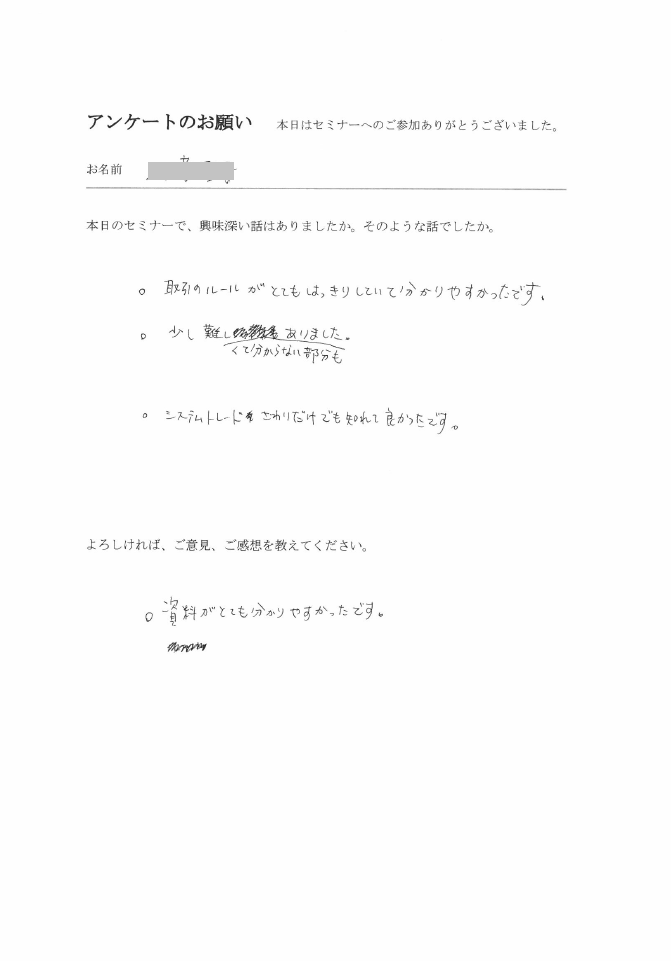 アンケートのお願い 本日はセミナーへのご参加ありがとうございました。
お名前
本日のセミナーで、興味深い話はありましたか。そのような話でしたか。
○ 取引のルールがとてもはっきりしていて分かりやすかったです。
○ 少し難し ありました。
くて分からない部分も
○ システムトレード さわりだけでも知れて良かったです。
よろしければ、ご意見、ご感想を教えてください。
○ 資料がとても分かりやすかったです。